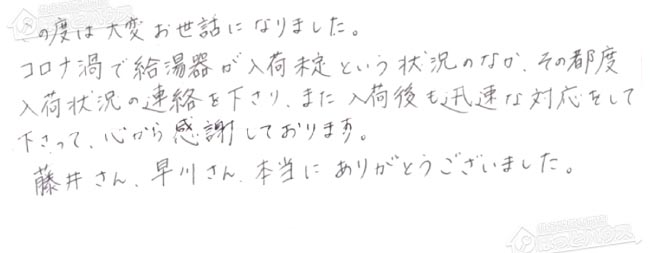 の度は大変お世話になりました。
コロナ渦で給湯器が入荷未定という状況のなか、その都度
入荷状況の連絡を下さり、また入荷後も迅速な対応をして
下さって、心から感謝しております。
藤井さん、早川さん、本当にありがとうございました。